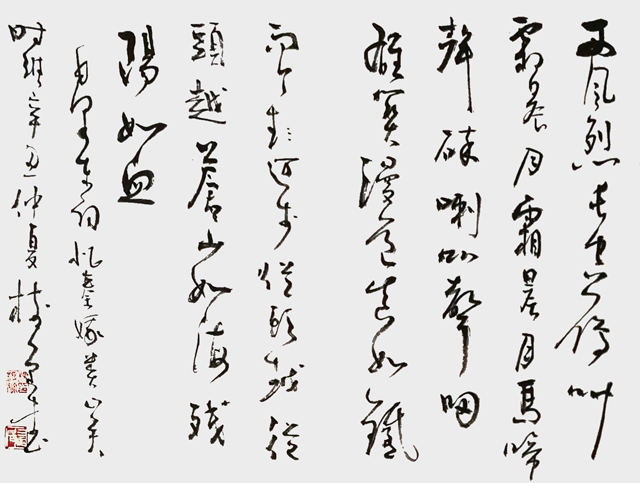 西風烈長空雁叫
霜晨月霜晨月馬啼
聲碎喇叭聲咽
雄關漫道真如鐵
而今邁步從頭越從
頭越蒼山如海殘
陽如血
毛泽东词忆秦娥娄山关
时維辛丑仲夏书